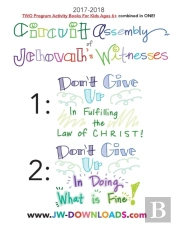 2017-2018
TWO Program Activity Books For Kids Ages 6+ combined in ONE!
Circuit Assembly
of
Jehovah's Witnesses
1:
Don't Give
Up
In Fulfilling
the
Law of CHRIST!
2:
Don't Give
Up
In Doing
What is Fine!
www.JW-DOWNLOADS.com
B